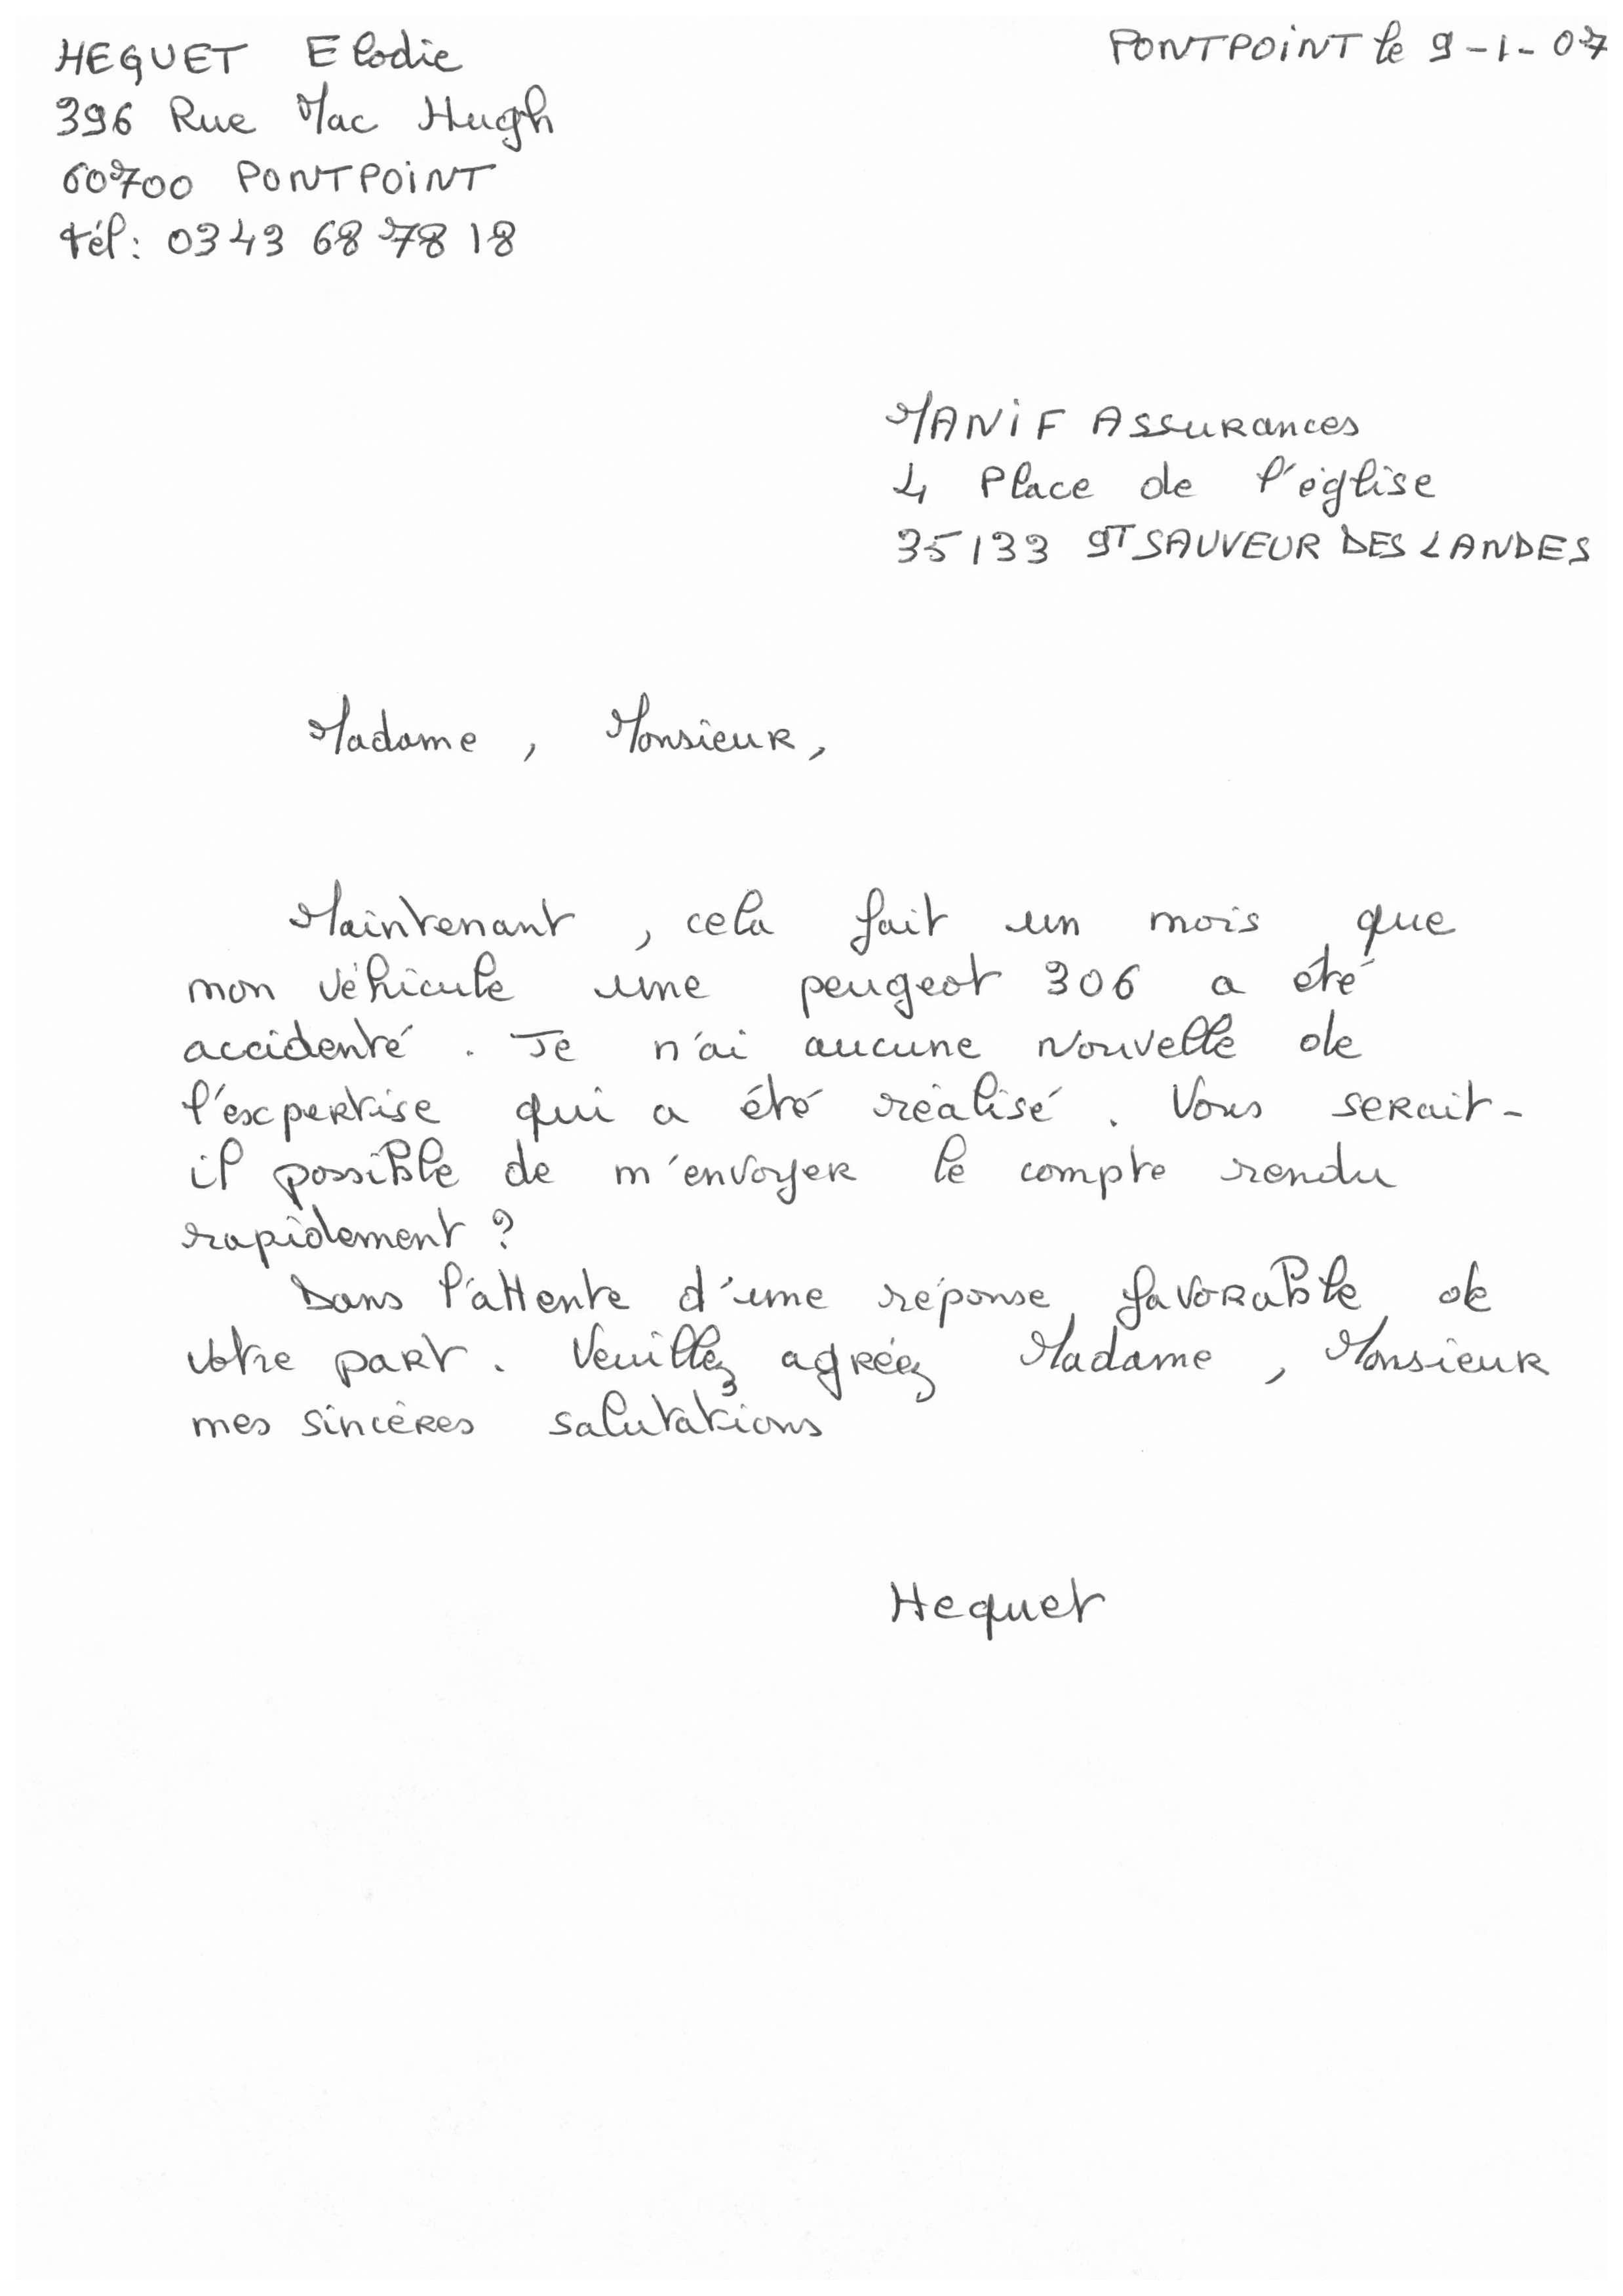 HEQUET Elodie
PONTPOINT le 9-1-07
396 Rue Mac Hugh
60700 PONTPOINT
tél: 03 43 68 78 18
MANIF ASSURances
4 Place de l'église
35133 ST SAUVEUR DES LANDES
Madame, Monsieur,
Maintenant, cela fait un mois que
mon véhicule une peugeot 306 a été
accidenté. Je n'ai aucune nouvelle de
l'expertise qui a été réalisé. Vous serait-
il possible de m'envoyer le compte rendu
rapidement ?
Dans l'attente d'une réponse favorable de
votre part. Veuillez agréez Madame, Monsieur
mes sincères salutations
Hequet